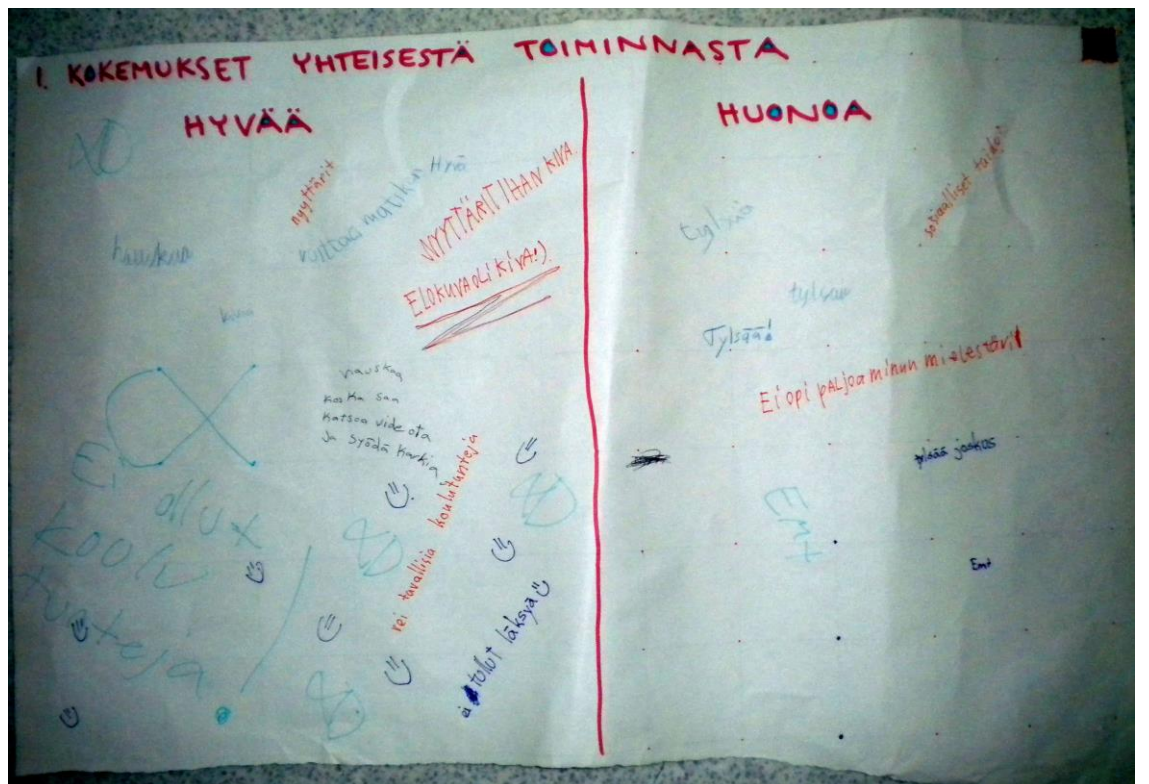 1. KOKEMUKSET YHTEISESTÄ TOIMINNASTA
HYVÄÄ
XD
nyyttärit
Hyvä
hauskaa
NYYTTÄRIT IHAN KIVA.
ELOKUVA OLI KIVA!).
kiva
hauskaa
koska saa
katsoa videota
ja syödä karkia
Ei
ollut
koulu
tunteja
!
XD
XD
XD
ei tavallisia koulutunteja
ei tullut läksyä
HUONOA
sosiaaliset taidot
tylsää
tylsää
Tylsää!
Ei opi pALjoa minun mielestäni!
tylsää joskus
Emt
Emt